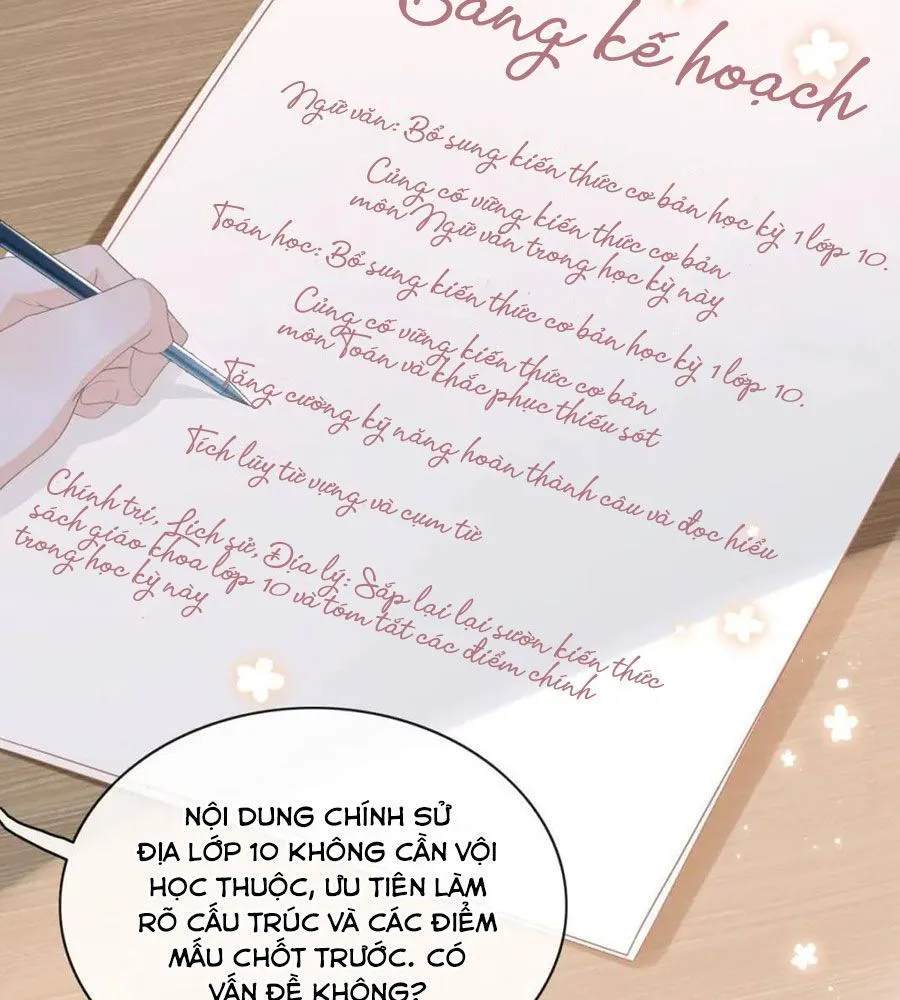 Bảng kế hoạch
Ngữ văn: Bổ sung kiến thức cơ bản học kỳ 1 lớp 10.
Củng cố vững kiến thức cơ bản
môn Ngữ văn trong học kỳ này
Toán học: Bổ sung kiến thức cơ bản học kỳ 1 lớp 10.
Củng cố vững kiến thức cơ bản
môn Toán và khắc phục thiếu sót
Tăng cường kỹ năng hoàn thành câu và đọc hiểu
Tích lũy từ vựng và cụm từ
Chính trị, Lịch sử, Địa lý: Sắp lại lại sườn kiến thức
sách giáo khoa lớp 10 và tóm tắt các điểm chính
trong học kỳ này
NỘI DUNG CHÍNH SỬ
ĐỊA LỚP 10 KHÔNG CẦN VỘI
HỌC THUỘC, ƯU TIÊN LÀM
RÕ CẤU TRÚC VÀ CÁC ĐIỂM
MẤU CHỐT TRƯỚC. CÓ
VẤN ĐỀ KHÔNG?